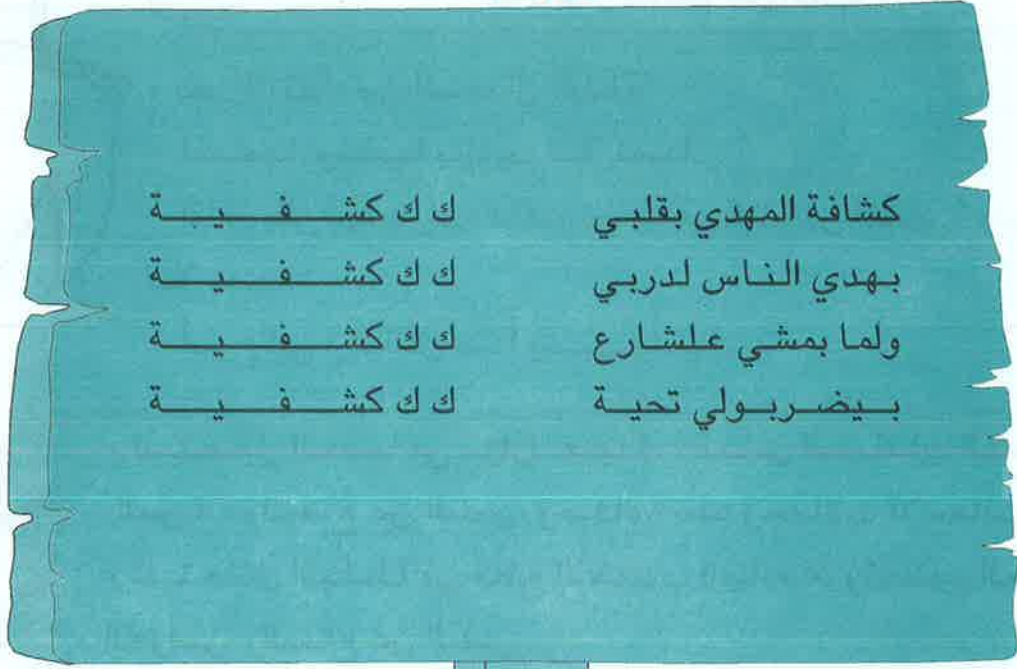 كشافة المهدي بقلبي ك ك كشفية
بهدي الناس لدربي ك ك كشفية
ولما بمشي علشارع ك ك كشفية
بيضربولي تحية ك ك كشفية